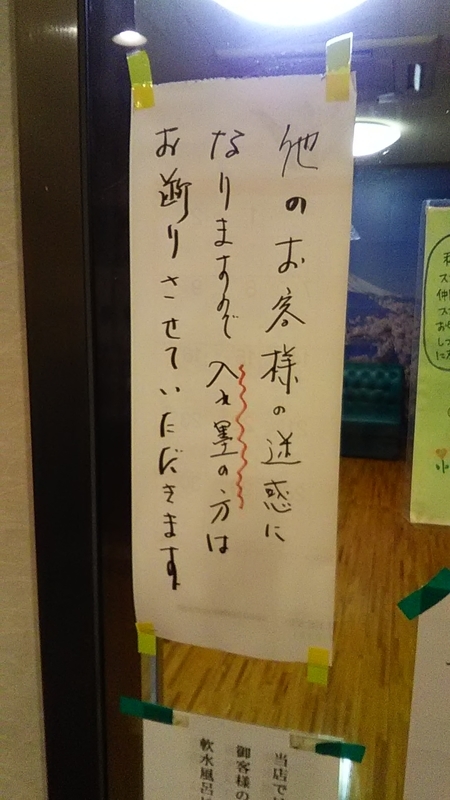 他のお客様の迷惑に
なりますので入れ墨の方は
お断りさせていただきます
当店では
御客様の
軟水風呂